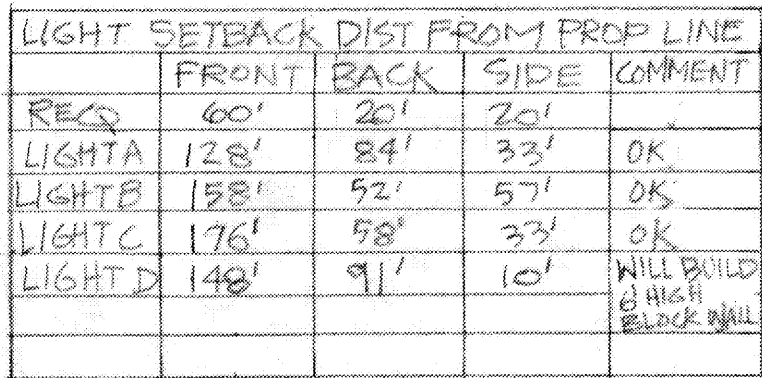 LIGHT SETBACK DIST FROM PROP LINE
FRONT BACK SIDE COMMENT
REQD 60' 20' 20'
LIGHT A 128' 84' 33' OK
LIGHT B 158' 52' 57' OK
LIGHT C 176' 58' 33' OK
LIGHT D 148' 91' 10' WILL BUILD
6' HIGH
BLOCK WALL